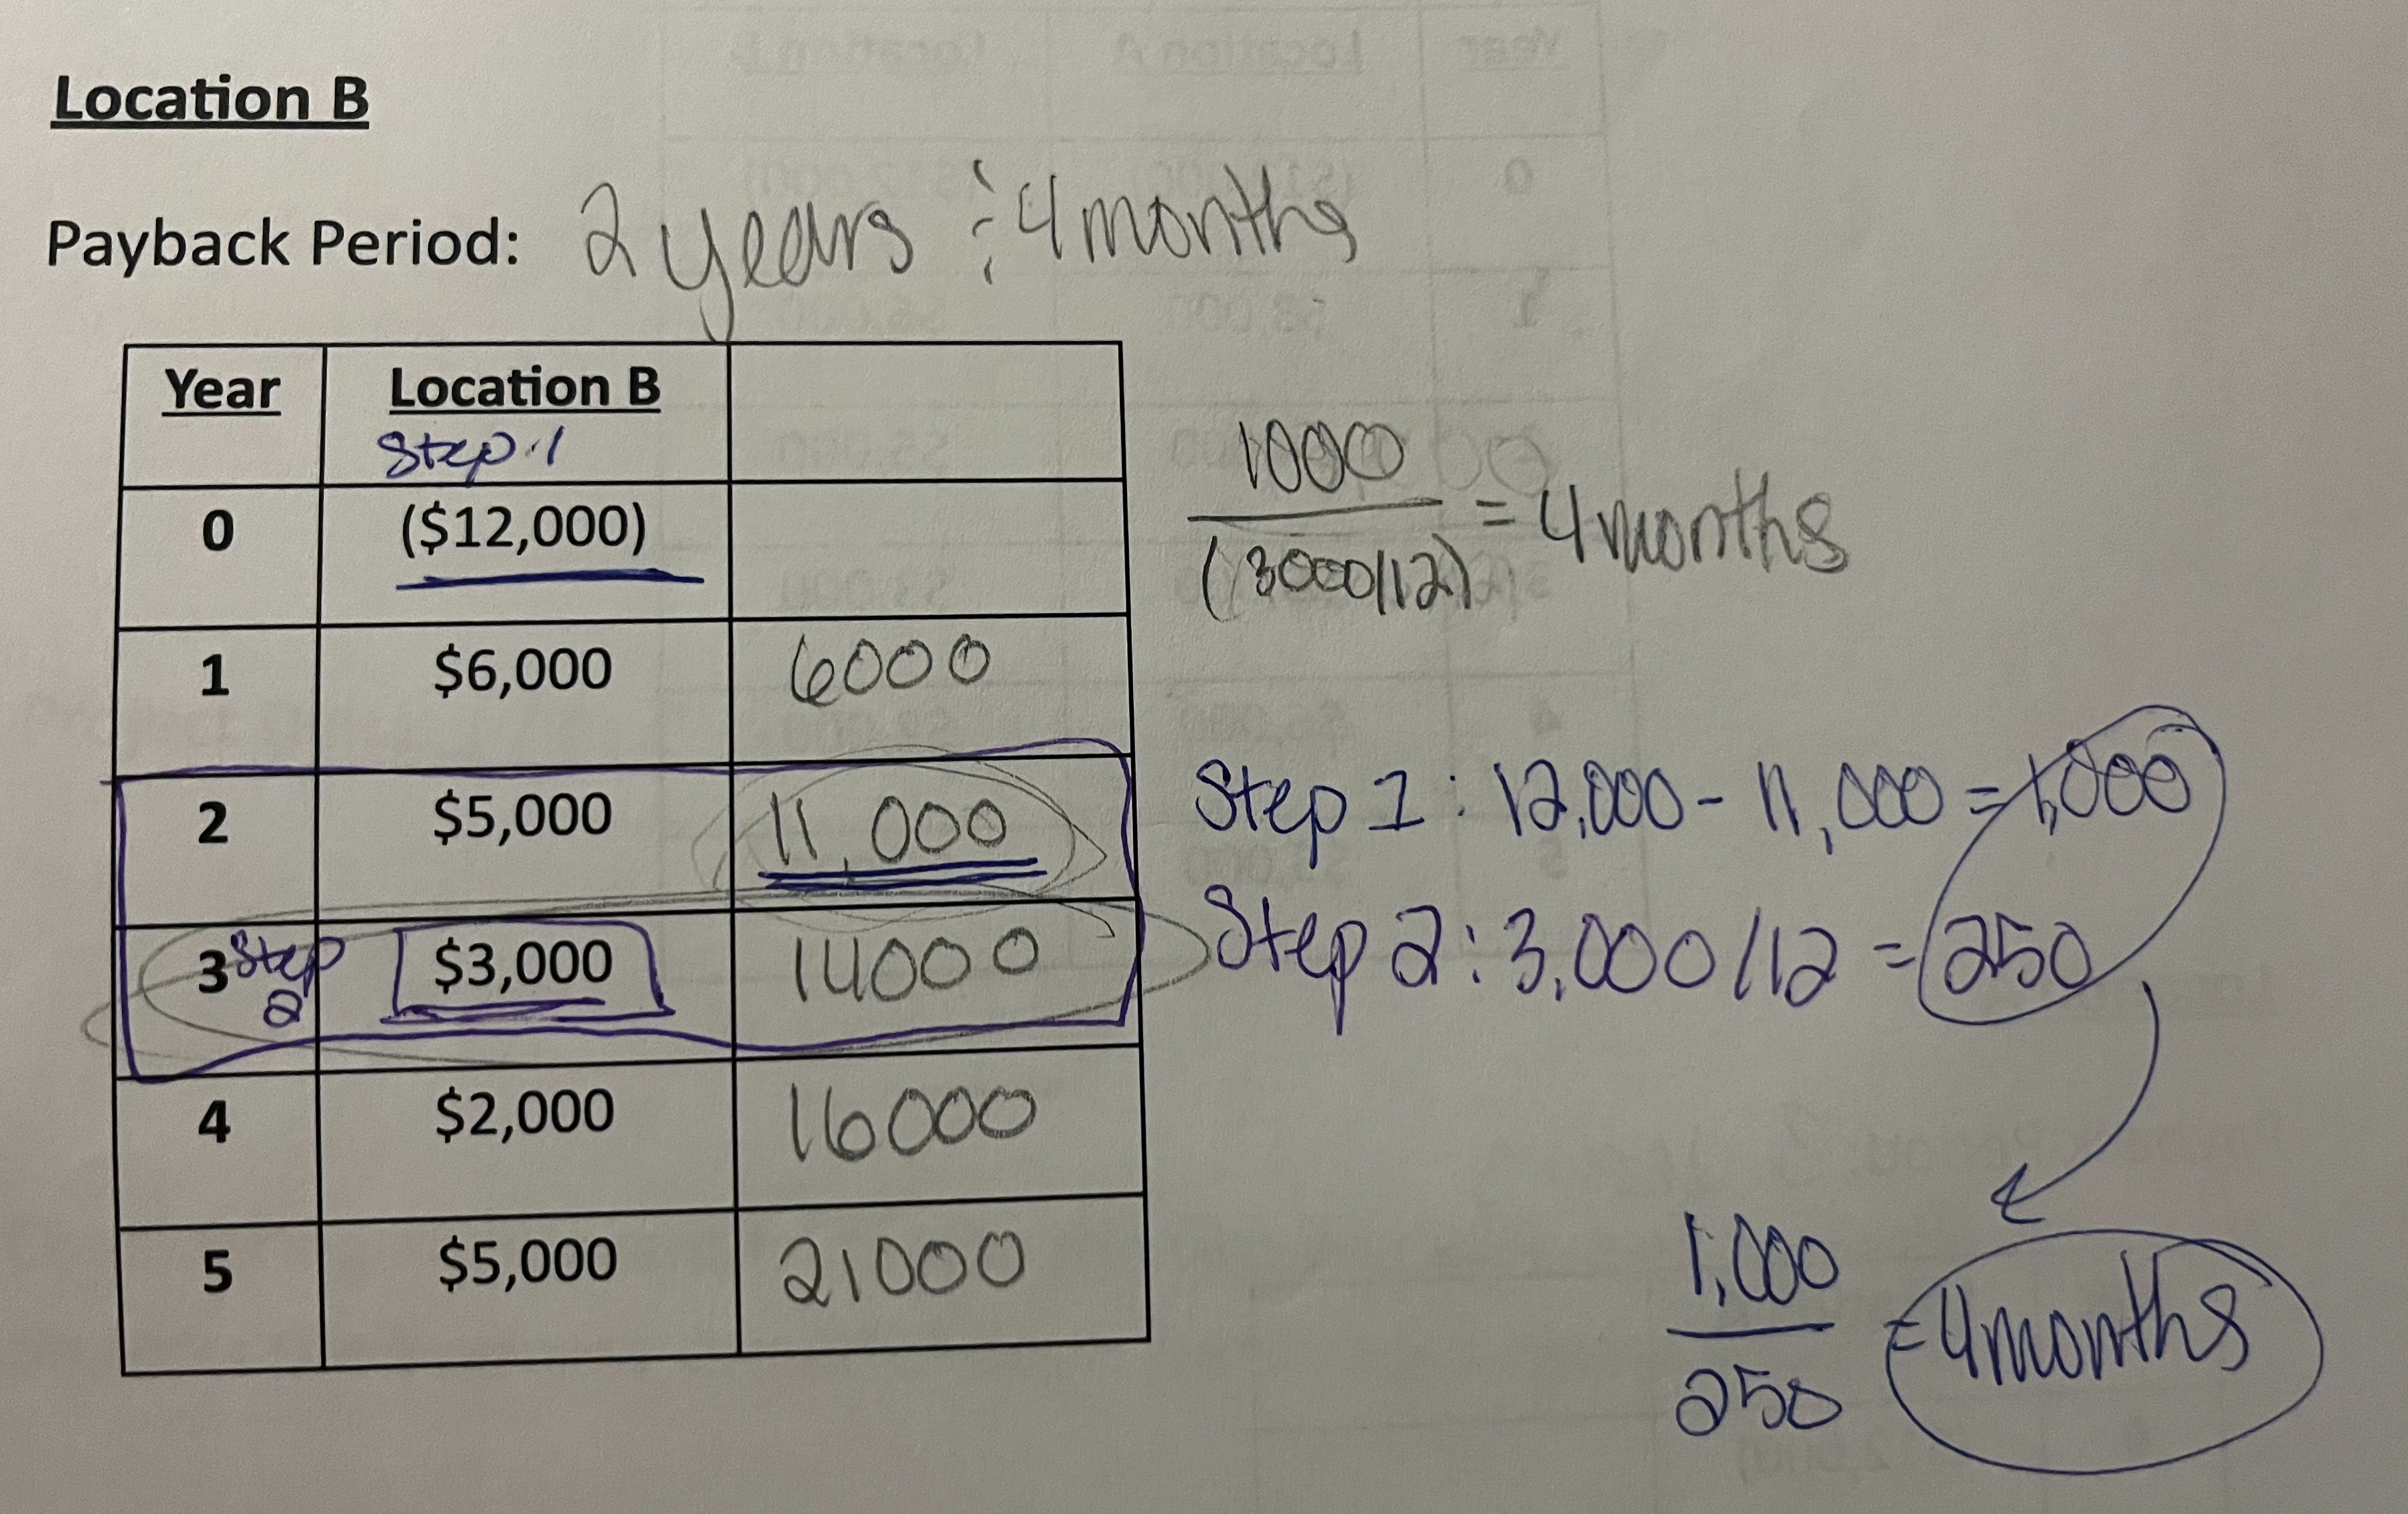 Location B
Payback Period: 2 years & 4 months
Year Location B
Step 1
0 ($12,000)
1 $6,000 6000
2 $5,000 11,000
3 Step 2 $3,000 14000
4 $2,000 16000
5 $5,000 21000
1000
(3000/12) = 4 months
Step 1: 12,000 - 11,000 = 1,000
Step 2: 3,000/12 = 250
1,000
250 = 4 months